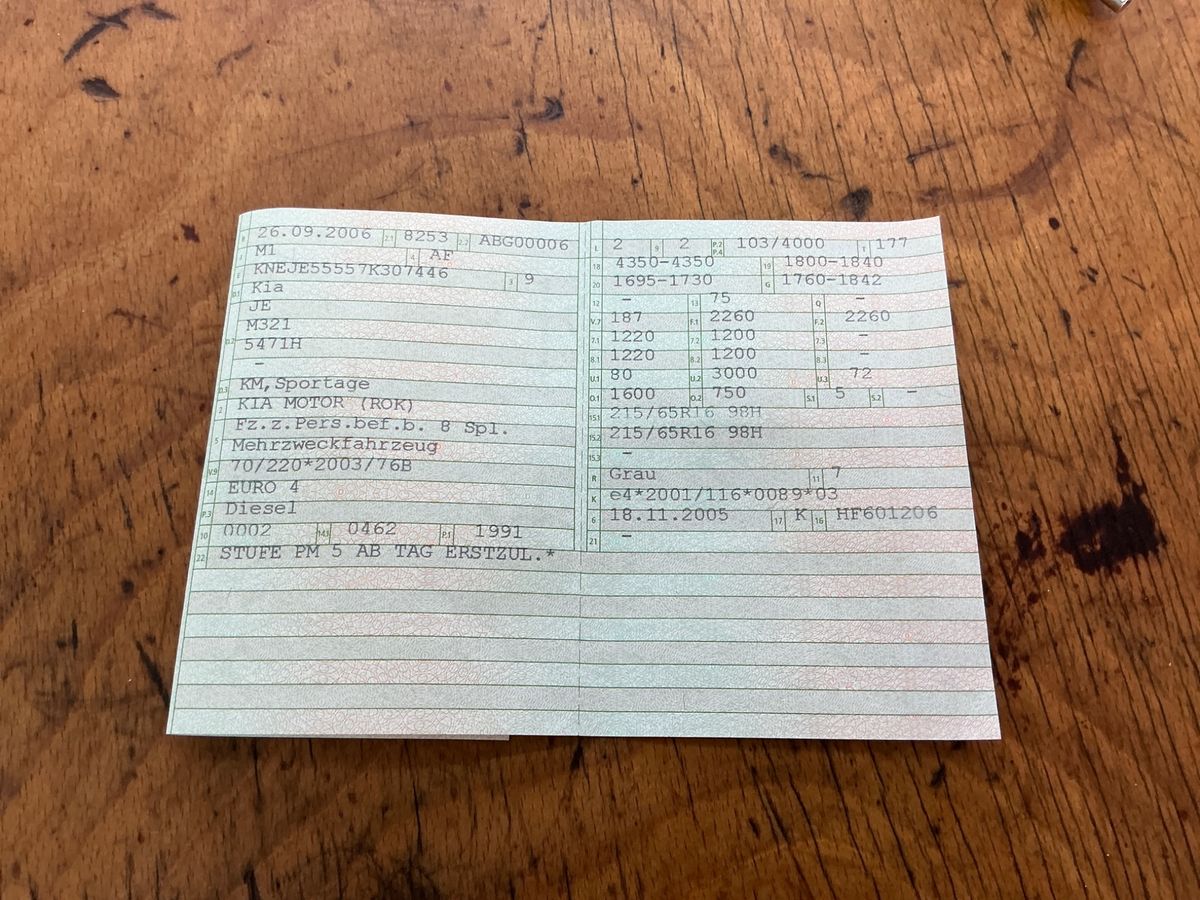 B 26.09.2006 2.1 8253 2.2 ABG00006
J M1 4 AF
E KNEJE55557K307446 3 9
D.1 Kia
JE
D.2 M321
5471H
-
D.3 KM,Sportage
2 KIA MOTOR (ROK)
5 Fz.z.Pers.bef.b. 8 Spl.
Mehrzweckfahrzeug
V.9 70/220*2003/76B
14 EURO 4
P.3 Diesel
10 0002 14.1 0462 P.1 1991
22 STUFE PM 5 AB TAG ERSTZUL.*
L 2 9 2 P.2 P.4 103/4000 T 177
18 4350-4350 19 1800-1840
20 1695-1730 G 1760-1842
12 - 13 75 Q -
V.7 187 F.1 2260 F.2 2260
7.1 1220 7.2 1200 7.3 -
8.1 1220 8.2 1200 8.3 -
U.1 80 U.2 3000 U.3 72
O.1 1600 O.2 750 S.1 5 S.2 -
15.1 215/65R16 98H
15.2 215/65R16 98H
15.3 -
R Grau 11 7
K e4*2001/116*0089*03
6 18.11.2005 17 K 16 HF601206
21 -